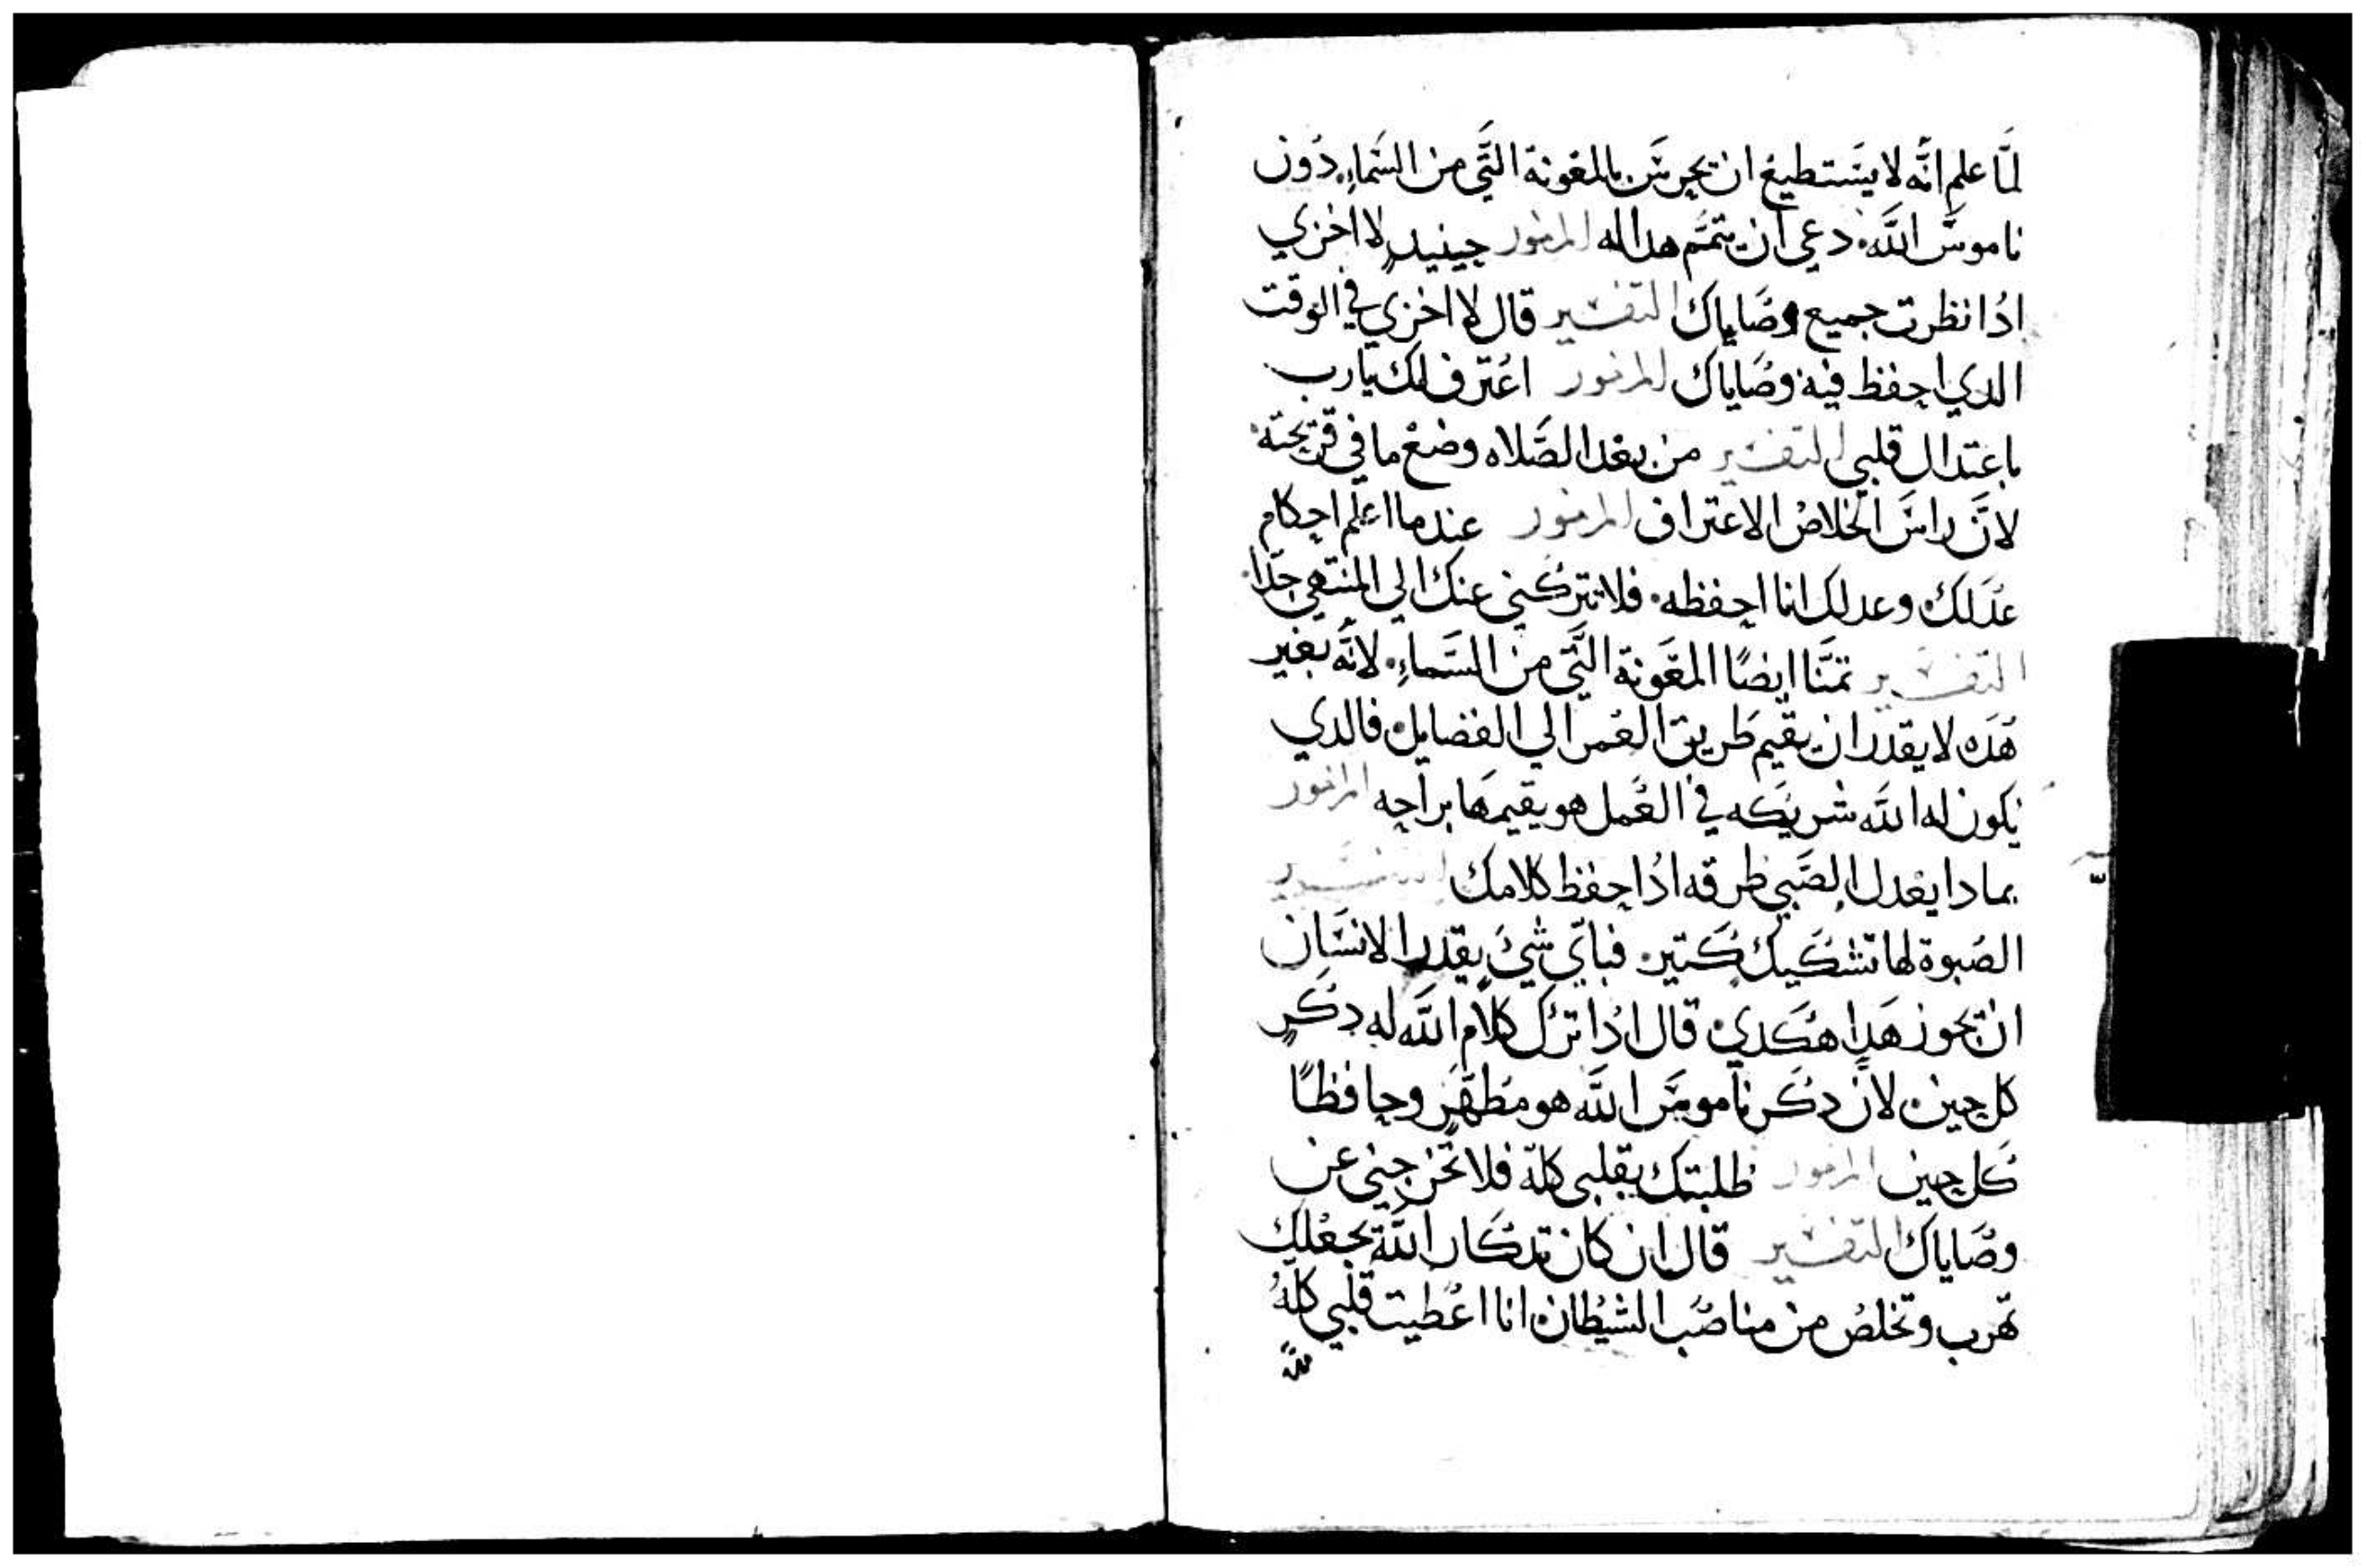 لمَّا علم انَّه لا يسَتطيع ان يحرسَ بالمعونة التَّي من السَماءِ. دُون
ناموسَ اللَّه. دعي ان يتمَّم هدا له المزمور حينيدٍ لا اخزي
ادُا نظرت جميع وصَاياك التفسَير قال لا اخزي في الوقت
الدي احفظ فيه وصَاياك المزمور اعترف لك يارب
باعتدال قلبي التفسَير من بعد الصَّلاه وضع ما في قريحته
لانَّ راسَ الخلاصَ الاعتراف المزمور عندما اعلم احكام
عدَلك وعدلك انا احفظه. فلا تتركني عنك الي المنتهي جدّا
التفسَير تمنَّا ايضًا المعَونة التَّي من السَماءِ. لانَّه بغير
هَده لا يقدر ان يقيم طريق العُمر الي الفضايل فالدي
يكون له اللَّه شريكه في العَمل هو يقيمهَا براحه المزمور
بمادا يعدل الصَّبي طرقه ادُا حفظ كلامك التفسَير
الصَبوة لها تشكيك كَتير. فبايّ شيَ يقدر الانسَان
ان يحوز هَدا هكَدي قال ادُا ترك كلام اللَّه له دكَر
كل حين لانَّ دكَر ناموسَ اللَّه هو مُطهَر وحافظًا
كَل حين المزمور طلبتك بقلبي كلّه فلا تخرجني عن
وصَاياك التفسَير قال ان كان تدكَار اللَّه يجعلك
تهرب وتخلصَ من مناصَب الشيطان انا اعُطيت قلبي كلَّهُ
للَّه